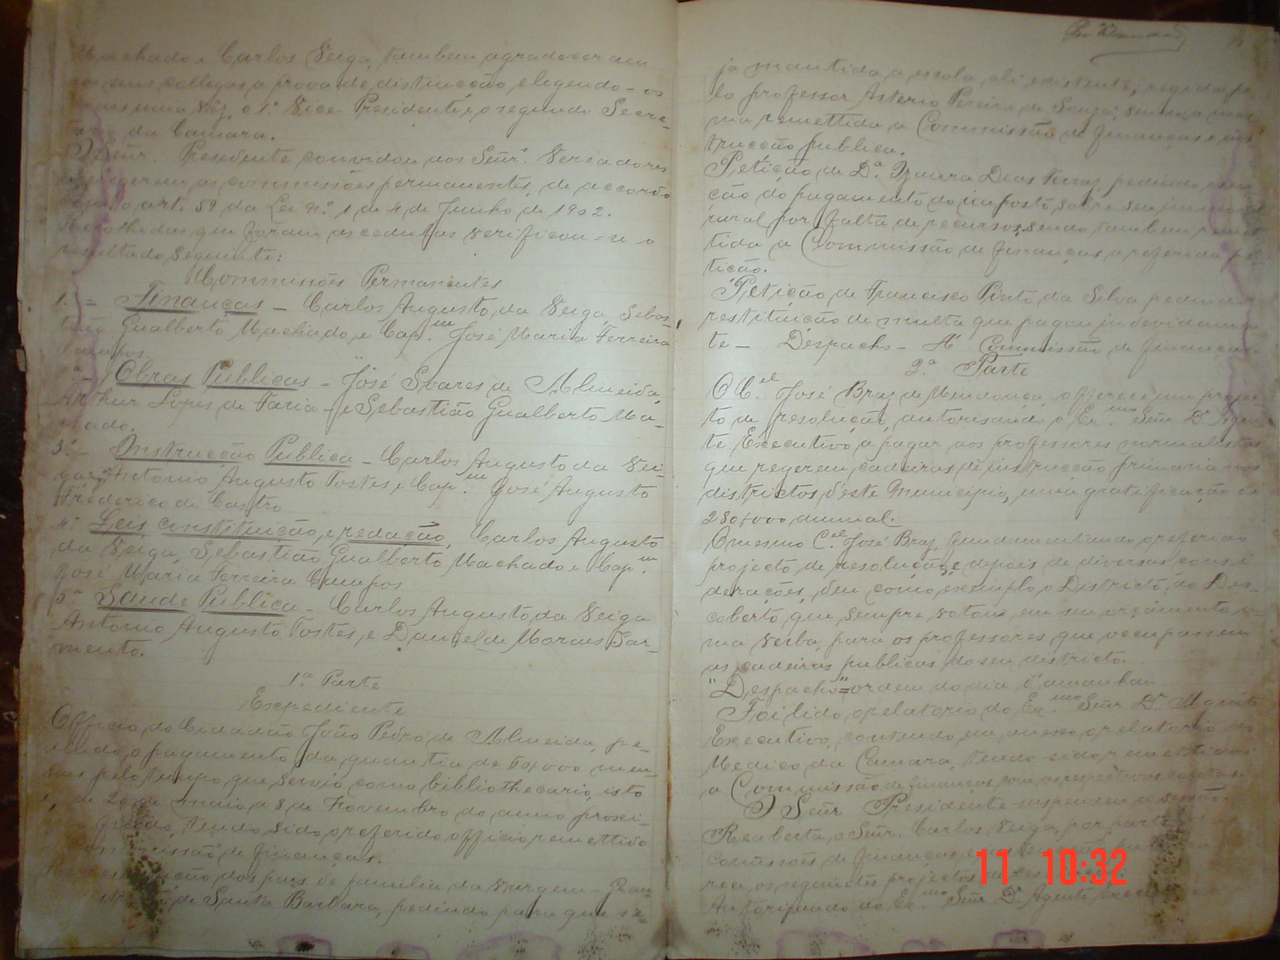 Machado e Carlos Veiga, tambem agradeceram
aos seus collegas a prova de distincção, elegendo-os
mais uma vez, o 1º Vice Presidente, e o segundo Secre-
tario da Camara.
O Señr. Presidente convidou aos Señrs. Vereadores
elegerem as commissões permanentes, de accordo
com o art. 59 da Lei nº 1 de 4 de Junho de 1902.
Recolhidas que foram as cedulas verificou-se o
resultado seguinte:
Commissões Permanentes
1ª - Finanças - Carlos Augusto da Veiga, Sebas-
tião Gualberto Machado, e Capm. José Maria Ferreira
Campos
2ª - Obras Publicas - José Soares de Almeida,
Arthur Lopes de Faria - e Sebastião Gualberto Ma-
chado.
3ª - Instrucção Publica - Carlos Augusto da Vei-
ga, Antonio Augusto Tostes e Capm. José Augusto
Frederico de Castro
4ª Leis constituição, e redacção, Carlos Augusto
da Veiga, Sebastião Gualberto Machado e Capm.
José Maria Ferreira Campos
5ª - Saude Publica - Carlos Augusto, da Veiga
Antonio Augusto Tostes, e Daniel de Moraes Sar-
mento.
1ª Parte
Expediente
Officio do Cidadão João Pedro, de Almeida, pe-
dindo, o pagamento da quantia de 60$000 men-
saes pelo tempo, que servio, como bibliothecario, isto
é, de 20 de maio a 8 de Novembro do anno proxi-
findo, tendo sido, o referido officio, remettido
commissão de finanças.
dos paes de familia da Vargem - Gran-
de Santa Barbara, pedindo para que se-
ja mantida, a escola, ali existente, regida pe-
lo professor Asterio Pereira de Souza; sendo, a mes-
ma remettida a Commissão de finanças e ins-
trucção publica.
Petição de Dª. Izaura Dias Ferraz, pedindo, isen-
ção do pagamento do imposto sobre seu immovel
rural por falta de recursos, sendo, tambem remet-
tida a Commissão de finanças a referida pe-
tição.
Petição, de Francisco Pinto da Silva pedindo
restituição de multa que pagou indevidamen-
te - Despacho - Á Commissão de finanças.
2ª Parte
O Cel. José Braz de Mendonça, offerece um projec-
to de resolução, autorisando, o Exmo Señr Dr. Agen-
te Executivo, a pagar aos professores normalistas
que regerem, cadeiras de instrucção primaria nos
districtos d'este Municipio, uma gratificação de
280$000 annual.
O mesmo Cel. José Braz, fundamentando, o referido
projecto de resolução, e depois de diversas consi-
derações, deu como, exemplo o Districto do Des-
coberto, que sempre votou, em seu orçamento, u-
ma verba, para os professores que occupassem
as cadeiras publicas do seu districto.
"Despacho" = ordem do dia d'amanhan
Foi lido, o relatorio do Exmo Señr Dr. Agente
Executivo, contendo, em annexo, o relatorio do
Medico da Camara, tendo sido, remettidos
a Commissão de finanças com as respectivas contas.
O Señr Presidente suspendeu a sessão.
Reaberta, o Señr. Carlos Veiga, por parte
comissões de finanças,
os seguintes projectos
Autorisando ao Exmo Señr Dr. Agente,
11 10:32